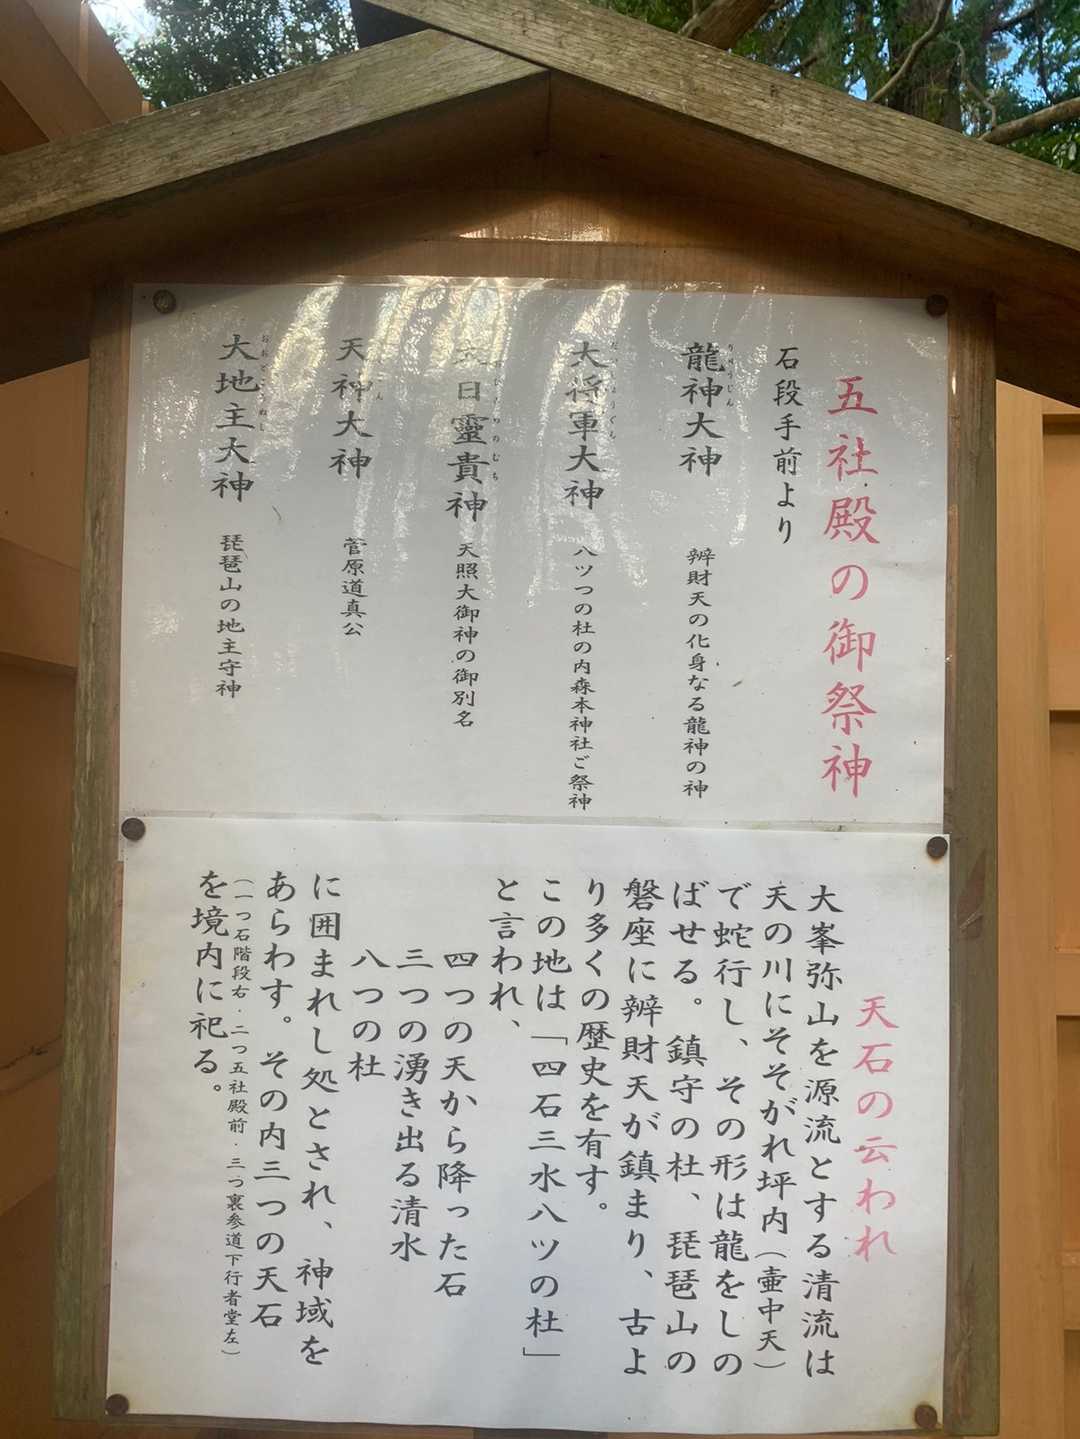 五社殿の御祭神
石段手前より
龍神大神 辨財天の化身なる龍神の神
大将軍大神 八ツつの杜の内森本神社ご祭神
日靈貴神 天照大御神の御別名
天神大神 菅原道真公
大地主大神 琵琶山の地主守神
天石の云われ
大峯弥山を源流とする清流は
天の川にそそがれ坪内（壷中天）
で蛇行し、その形は龍をしの
ばせる。鎮守の杜、琵琶山の
磐座に辨財天が鎮まり、古よ
り多くの歴史を有す。
この地は「四石三水八ツの杜」
と言われ、
四つの天から降った石
三つの湧き出る清水
八つの杜
に囲まれし処とされ、神域を
あらわす。その内三つの天石
（一つ石階段右・二つ五社殿前・三つ裏参道下行者堂左）
を境内に祀る。